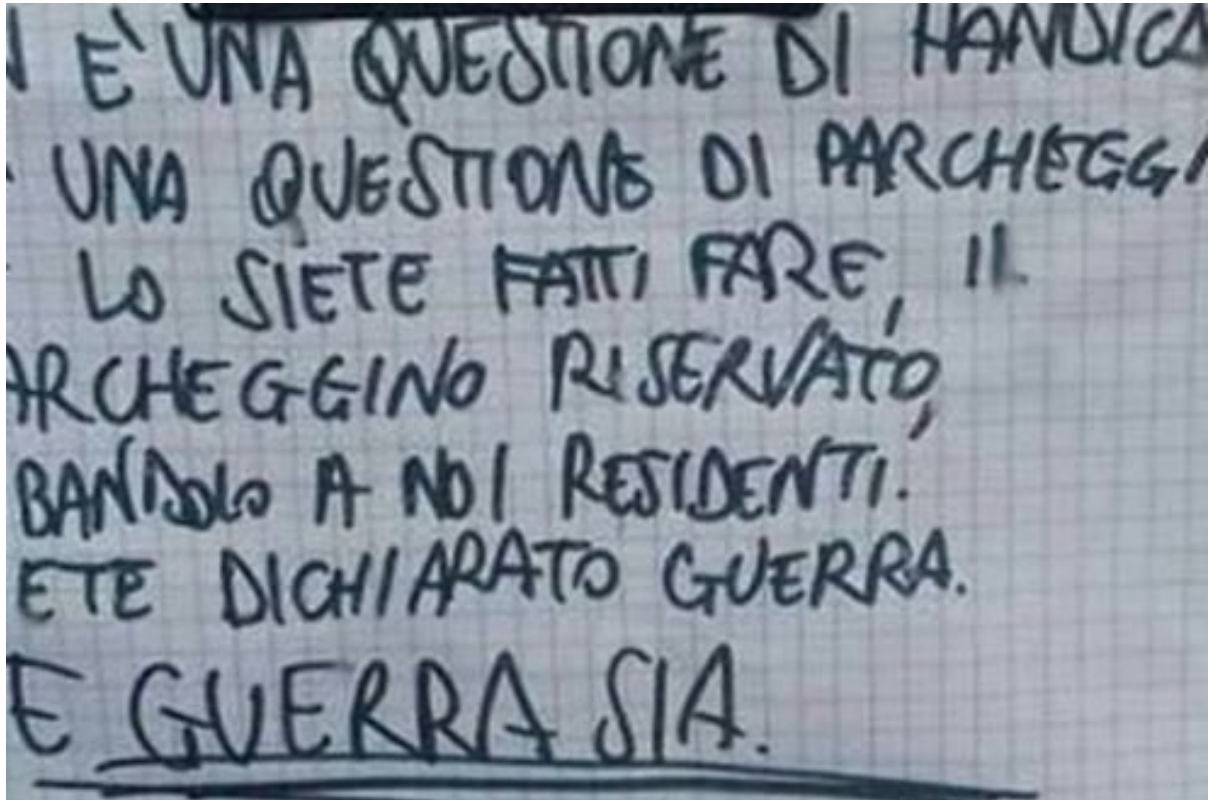 N È UNA QUESTIONE DI HANDICA
UNA QUESTIONE DI PARCHEGGI
LO SIETE FATTI FARE, IL
ARCHEGGINO RISERVATO,
BANDOLO A NOI RESIDENTI.
ETE DICHIARATO GUERRA.
E GUERRA SIA.